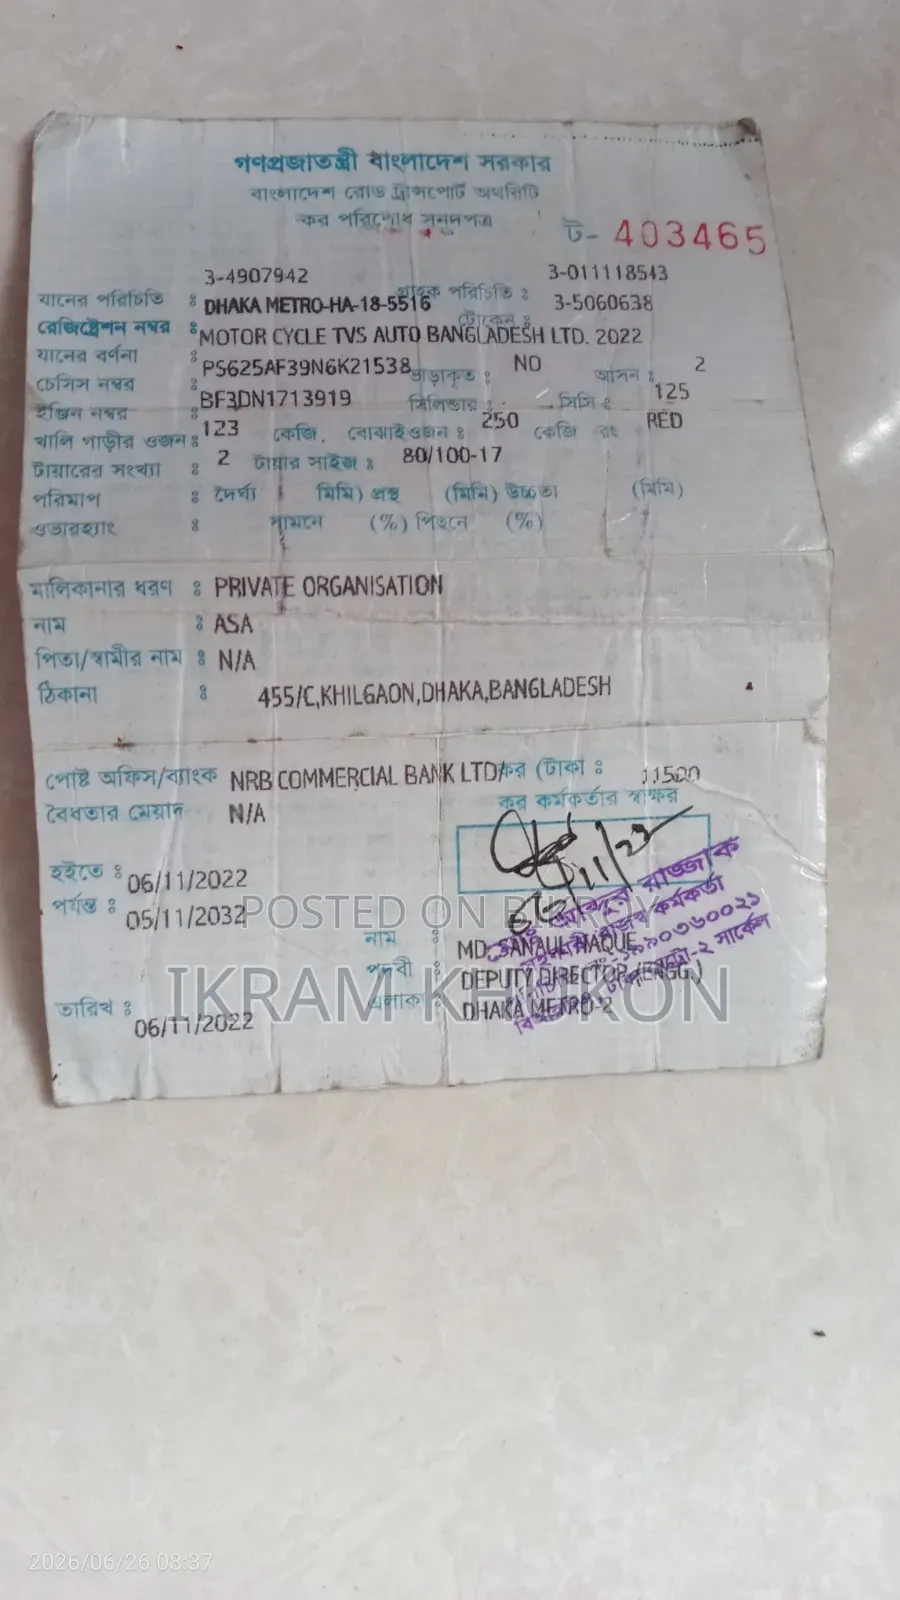 গণপ্রজাতন্ত্রী বাংলাদেশ সরকার
বাংলাদেশ রোড ট্রান্সপোর্ট অথরিটি
কর পরিশোধ সনদপত্র
ট- 403465
3-4907942 3-011118543
যানের পরিচিতি : গ্রাহক পরিচিতি : 3-5060638
রেজিষ্ট্রেশন নম্বর : DHAKA METRO-HA-18-5516 টোকেন :
যানের বর্ণনা : MOTOR CYCLE TVS AUTO BANGLADESH LTD. 2022
চেসিস নম্বর : PS625AF39N6K21538 ভাড়াকৃত : NO আসন : 2
ইঞ্জিন নম্বর : BF3DN1713919 সিলিন্ডার : সিসি : 125
খালি গাড়ীর ওজন : 123 কেজি. বোঝাইওজন : 250 কেজি রং RED
টায়ারের সংখ্যা : 2 টায়ার সাইজ : 80/100-17
পরিমাপ : দৈর্ঘ্য মিমি) প্রস্থ (মিমি) উচ্চতা (মিমি)
ওভারহ্যাং : সামনে (%) পিছনে (%)
মালিকানার ধরণ : PRIVATE ORGANISATION
নাম : ASA
পিতা/স্বামীর নাম : N/A
ঠিকানা : 455/C,KHILGAON,DHAKA,BANGLADESH
পোষ্ট অফিস/ব্যাংক NRB COMMERCIAL BANK LTD/কর (টাকা : 11500
বৈধতার মেয়াদ N/A কর কর্মকর্তার স্বাক্ষর
হইতে : 06/11/2022
পর্যন্ত : 05/11/2032
POSTED ON BIKROY
নাম : MD. SANAUL HAQUE
পদবী : DEPUTY DIRECTOR (ENGG.)
IKRAM KHOKON
এলাকা : DHAKA METRO-2
তারিখ : 06/11/2022
রাজ্জাক
রাজস্ব কর্মকর্তা
সার্কেল
2026/06/26 08:37